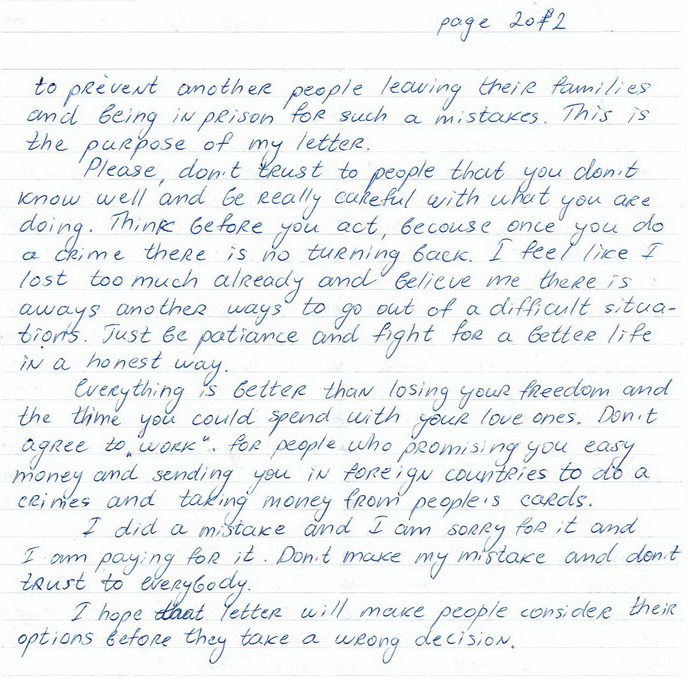 page 2of2
to prevent another people leaving their families
and being in prison for such a mistakes. This is
the purpose of my letter.
Please, don't trust to people that you don't
know well and be really careful with what you are
doing. Think before you act, becouse once you do
a crime there is no turning back. I feel like I
lost too much already and believe me there is
aways another ways to go out of a difficult situa-
tions. Just be patiance and fight for a better life
in a honest way.
Everything is better than losing your freedom and
the thime you could spend with your love ones. Don't
agree to „work“. for people who promising you easy
money and sending you in foreign countries to do a
crimes and taking money from people's cards.
I did a mistake and I am sorry for it and
I am paying for it. Don't make my mistake and don't
trust to everybody.
I hope that letter will make people consider their
options before they take a wrong decision.